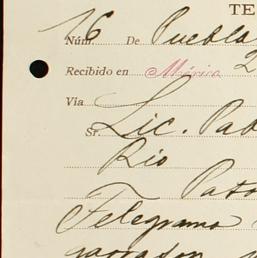 TE
Núm 16 De Puebla
Recibido en México
Vía
Sr. Lic. Pab
Río
Telegrama